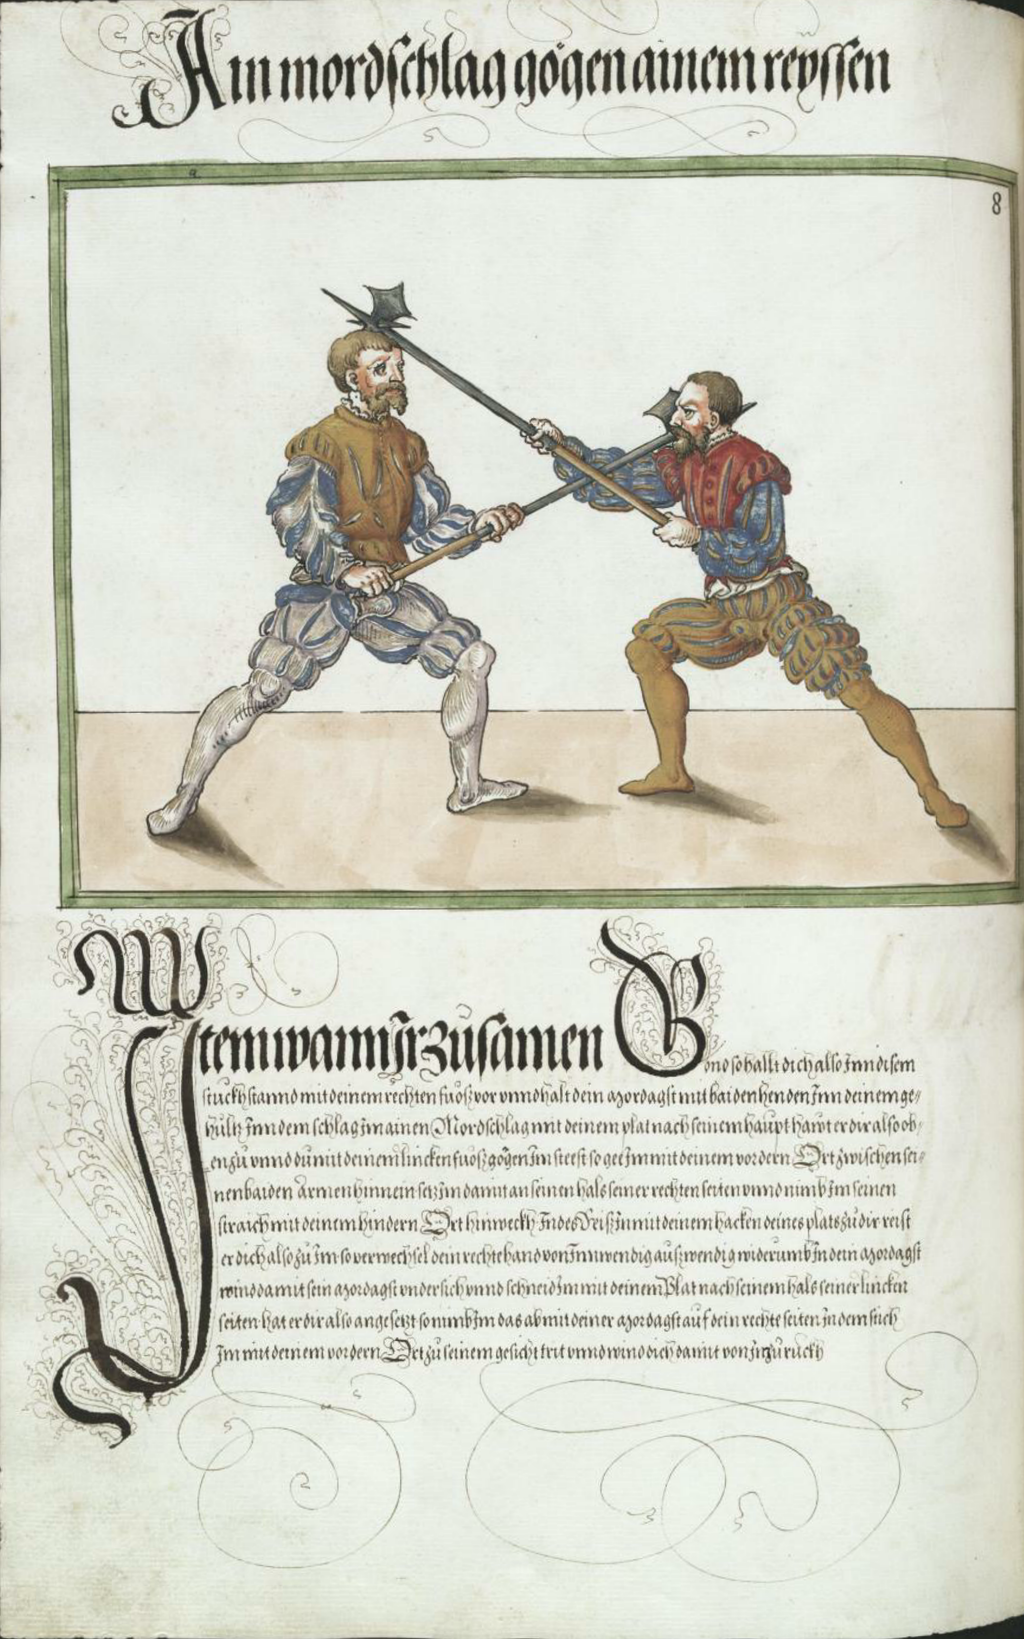 Ain mordschlag gögen ainem reyssen
8
Item wann Ir zusamen G
ond so hallt dich also Inn disem
stuckh stannd mit deinem rechten fuosz vor unnd halt dein Mordagst mit baiden henden Inn deinem ge=
hültz Inn dem schlag Im ainen Mordschlag mit deinem plat nach seinem haupt hawt er dir also ob=
en zu unnd du mit deinem lincken fuosz gögen Im steest so gee Im mit deinem vordern Ort zwischen sei=
nen baiden Armen hinnein setz Im damit an seinen hals seiner rechten seiten unnd nimb Im seinen
straich mit deinem hindern Ort hinweckh Indes Reisz In mit deinem hacken deines plats zu dir reist
er dich also zu Im so verwechsel dein rechte hand von Innwendig auszwendig widerumb In dein Mordagst
wind damit sein Mordagst undersich unnd schneid Im mit deinem Plat nach seinem hals seiner lincken
seiten hat er dir also angesetzt so nimb Im das ab mit deiner Mordagst auf dein rechte seiten Indem stich
Im mit deinem vordern Ort zu seinem gesicht trit unnd wind dich damit von Im zu ruckh